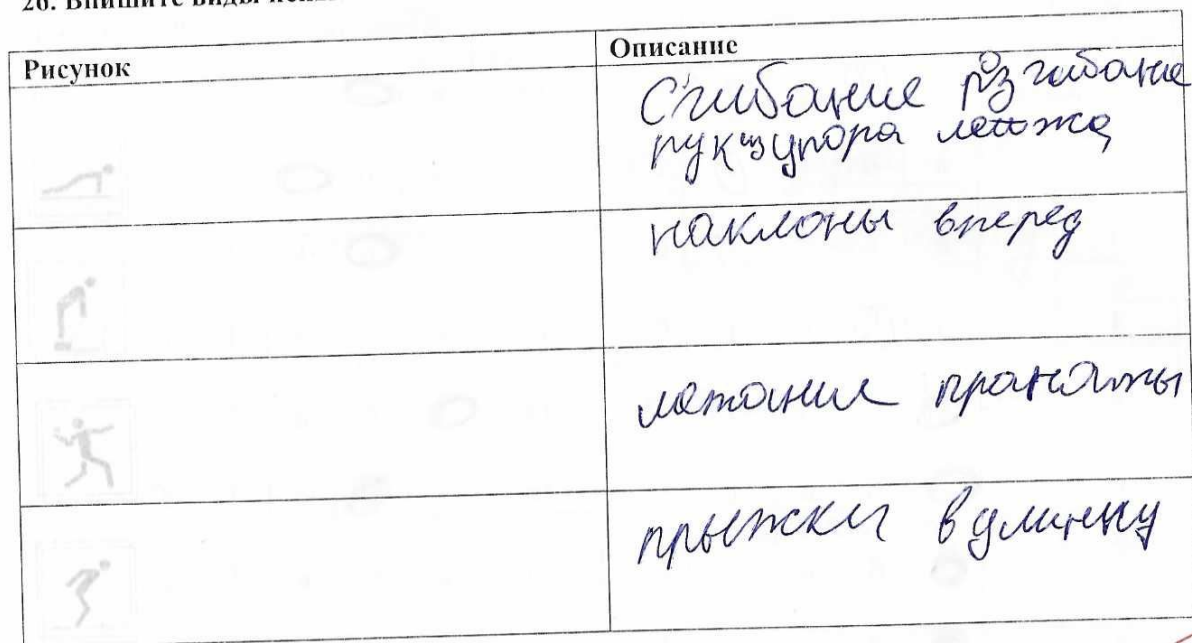 26. Впишите виды
Рисунок
Описание
Сгибание разгибание
рук из упора лежа
наклоны вперед
метание пранаты
прыжки в длинну